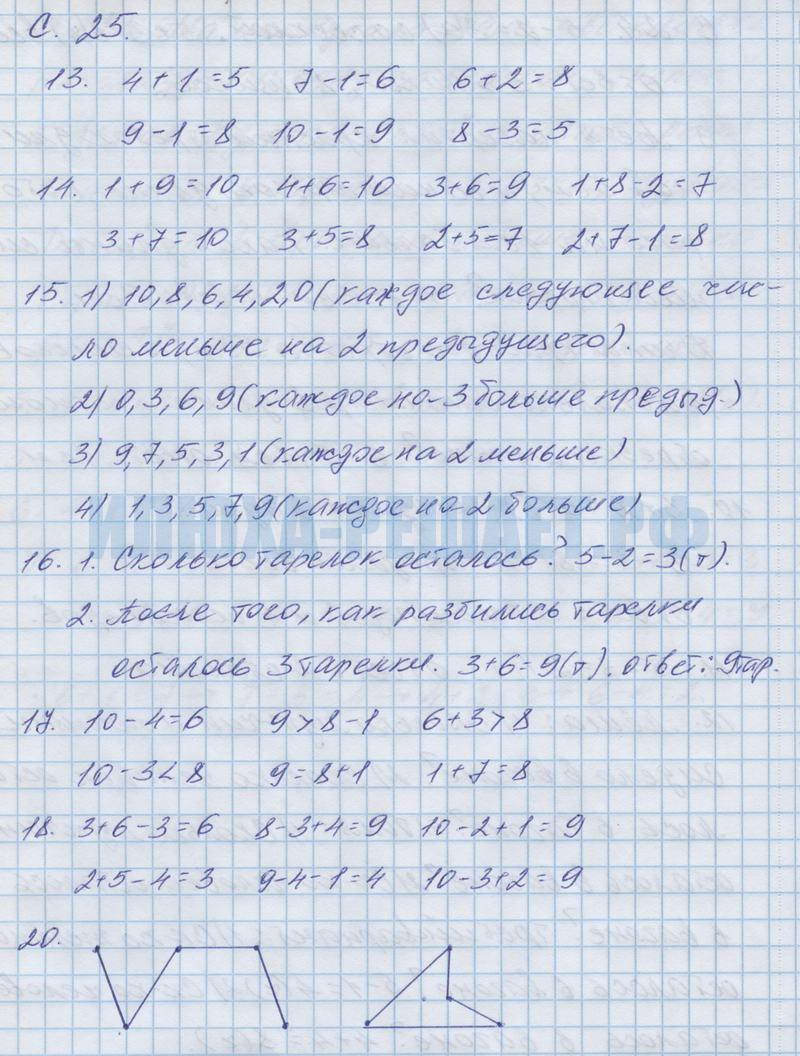 С. 25.
13. 4+1=5 7-1=6 6+2=8
9-1=8 10-1=9 8-3=5
14. 1+9=10 4+6=10 3+6=9 1+8-2=7
3+7=10 3+5=8 2+5=7 2+7-1=8
15. 1) 10,8,6,4,2,0 (каждое следующее чис-
ло меньше на 2 предыдущего).
2) 0,3,6,9 (каждое на 3 больше предыд.)
3) 9,7,5,3,1 (каждое на 2 меньше)
4) 1,3,5,7,9 (каждое на 2 больше)
ИННХА-РЕШАЕТ.РФ
16. 1. Сколько тарелок осталось? 5-2=3(т).
2. После того, как разбились тарелки
осталось 3 тарелки. 3+6=9(т). ответ: 9тар.
17. 10-4=6 9>8-1 6+3>8
10-3<8 9=8+1 1+7=8
18. 3+6-3=6 8-3+4=9 10-2+1=9
2+5-4=3 9-4-1=4 10-3+2=9
20.